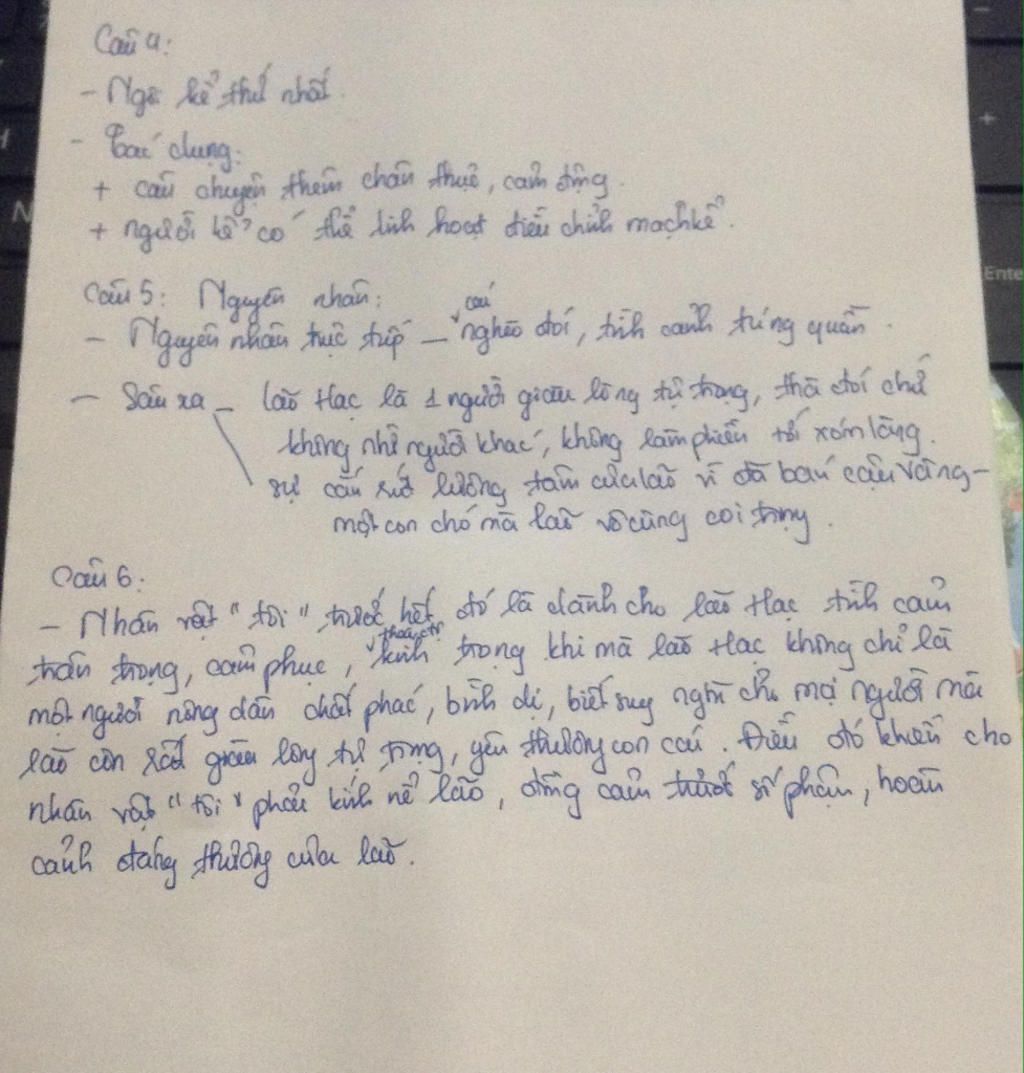 Câu 4:
- Ngôi kể thứ nhất.
- Tác dụng:
+ câu chuyện thêm chân thực, cảm động.
+ người kể có thể linh hoạt điều chỉnh mạch kể.
Câu 5: Nguyên nhân:
- Nguyên nhân trực tiếp - cái nghèo đói, tình cảnh túng quẫn.
- Sâu xa - lão Hạc là 1 người giàu lòng tự trọng, thà đói chứ
không nhờ người khác, không làm phiền tới xóm làng.
sự cắn rứt lương tâm của lão vì đã bán cậu Vàng -
một con chó mà lão vô cùng coi trọng.
Câu 6:
- Nhân vật "tôi" trước hết đó là dành cho lão Hạc tình cảm
trân trọng, cảm phục, kính trọng khi mà lão Hạc không chỉ là
một người nông dân chất phác, bình dị, biết suy nghĩ cho mọi người mà
lão còn rất giàu lòng tự trọng, yêu thương con cái. Điều đó khiến cho
nhân vật "tôi" phải kính nể lão, đồng cảm trước số phận, hoàn
cảnh đáng thương của lão.
Enter